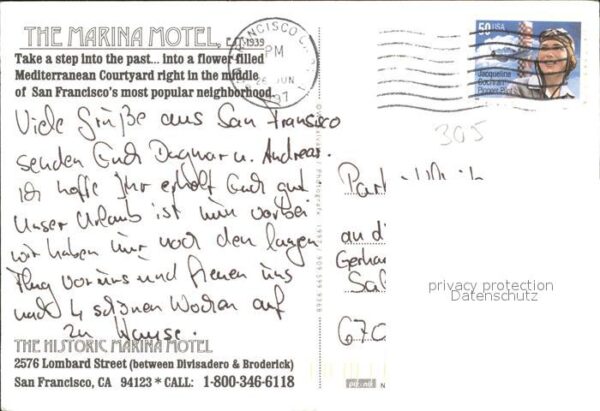 THE MARINA MOTEL, EST. 1939
Take a step into the past... into a flower filled
Mediterranean Courtyard right in the middle
of San Francisco's most popular neighborhood.
FRANCISCO C
PM
JUN
97
50 USA
Jacqueline
Cochran
Pioneer Pilot
305
Viele Grüße aus San Fransisco
senden Euch Dagmar u. Andreas.
Ich hoffe Ihr erholt Euch gut
Unser Urlaub ist nun vorbei
wir haben nur noch den langen
Flug vor uns und freuen uns
nach 4 schönen Wochen auf
zu Hause.
THE HISTORIC MARINA MOTEL
2576 Lombard Street (between Divisadero & Broderick)
San Francisco, CA 94123 * CALL: 1-800-346-6118
1997 909 599 9368
an d
Gerha
Sal
670
privacy protection
Datenschutz